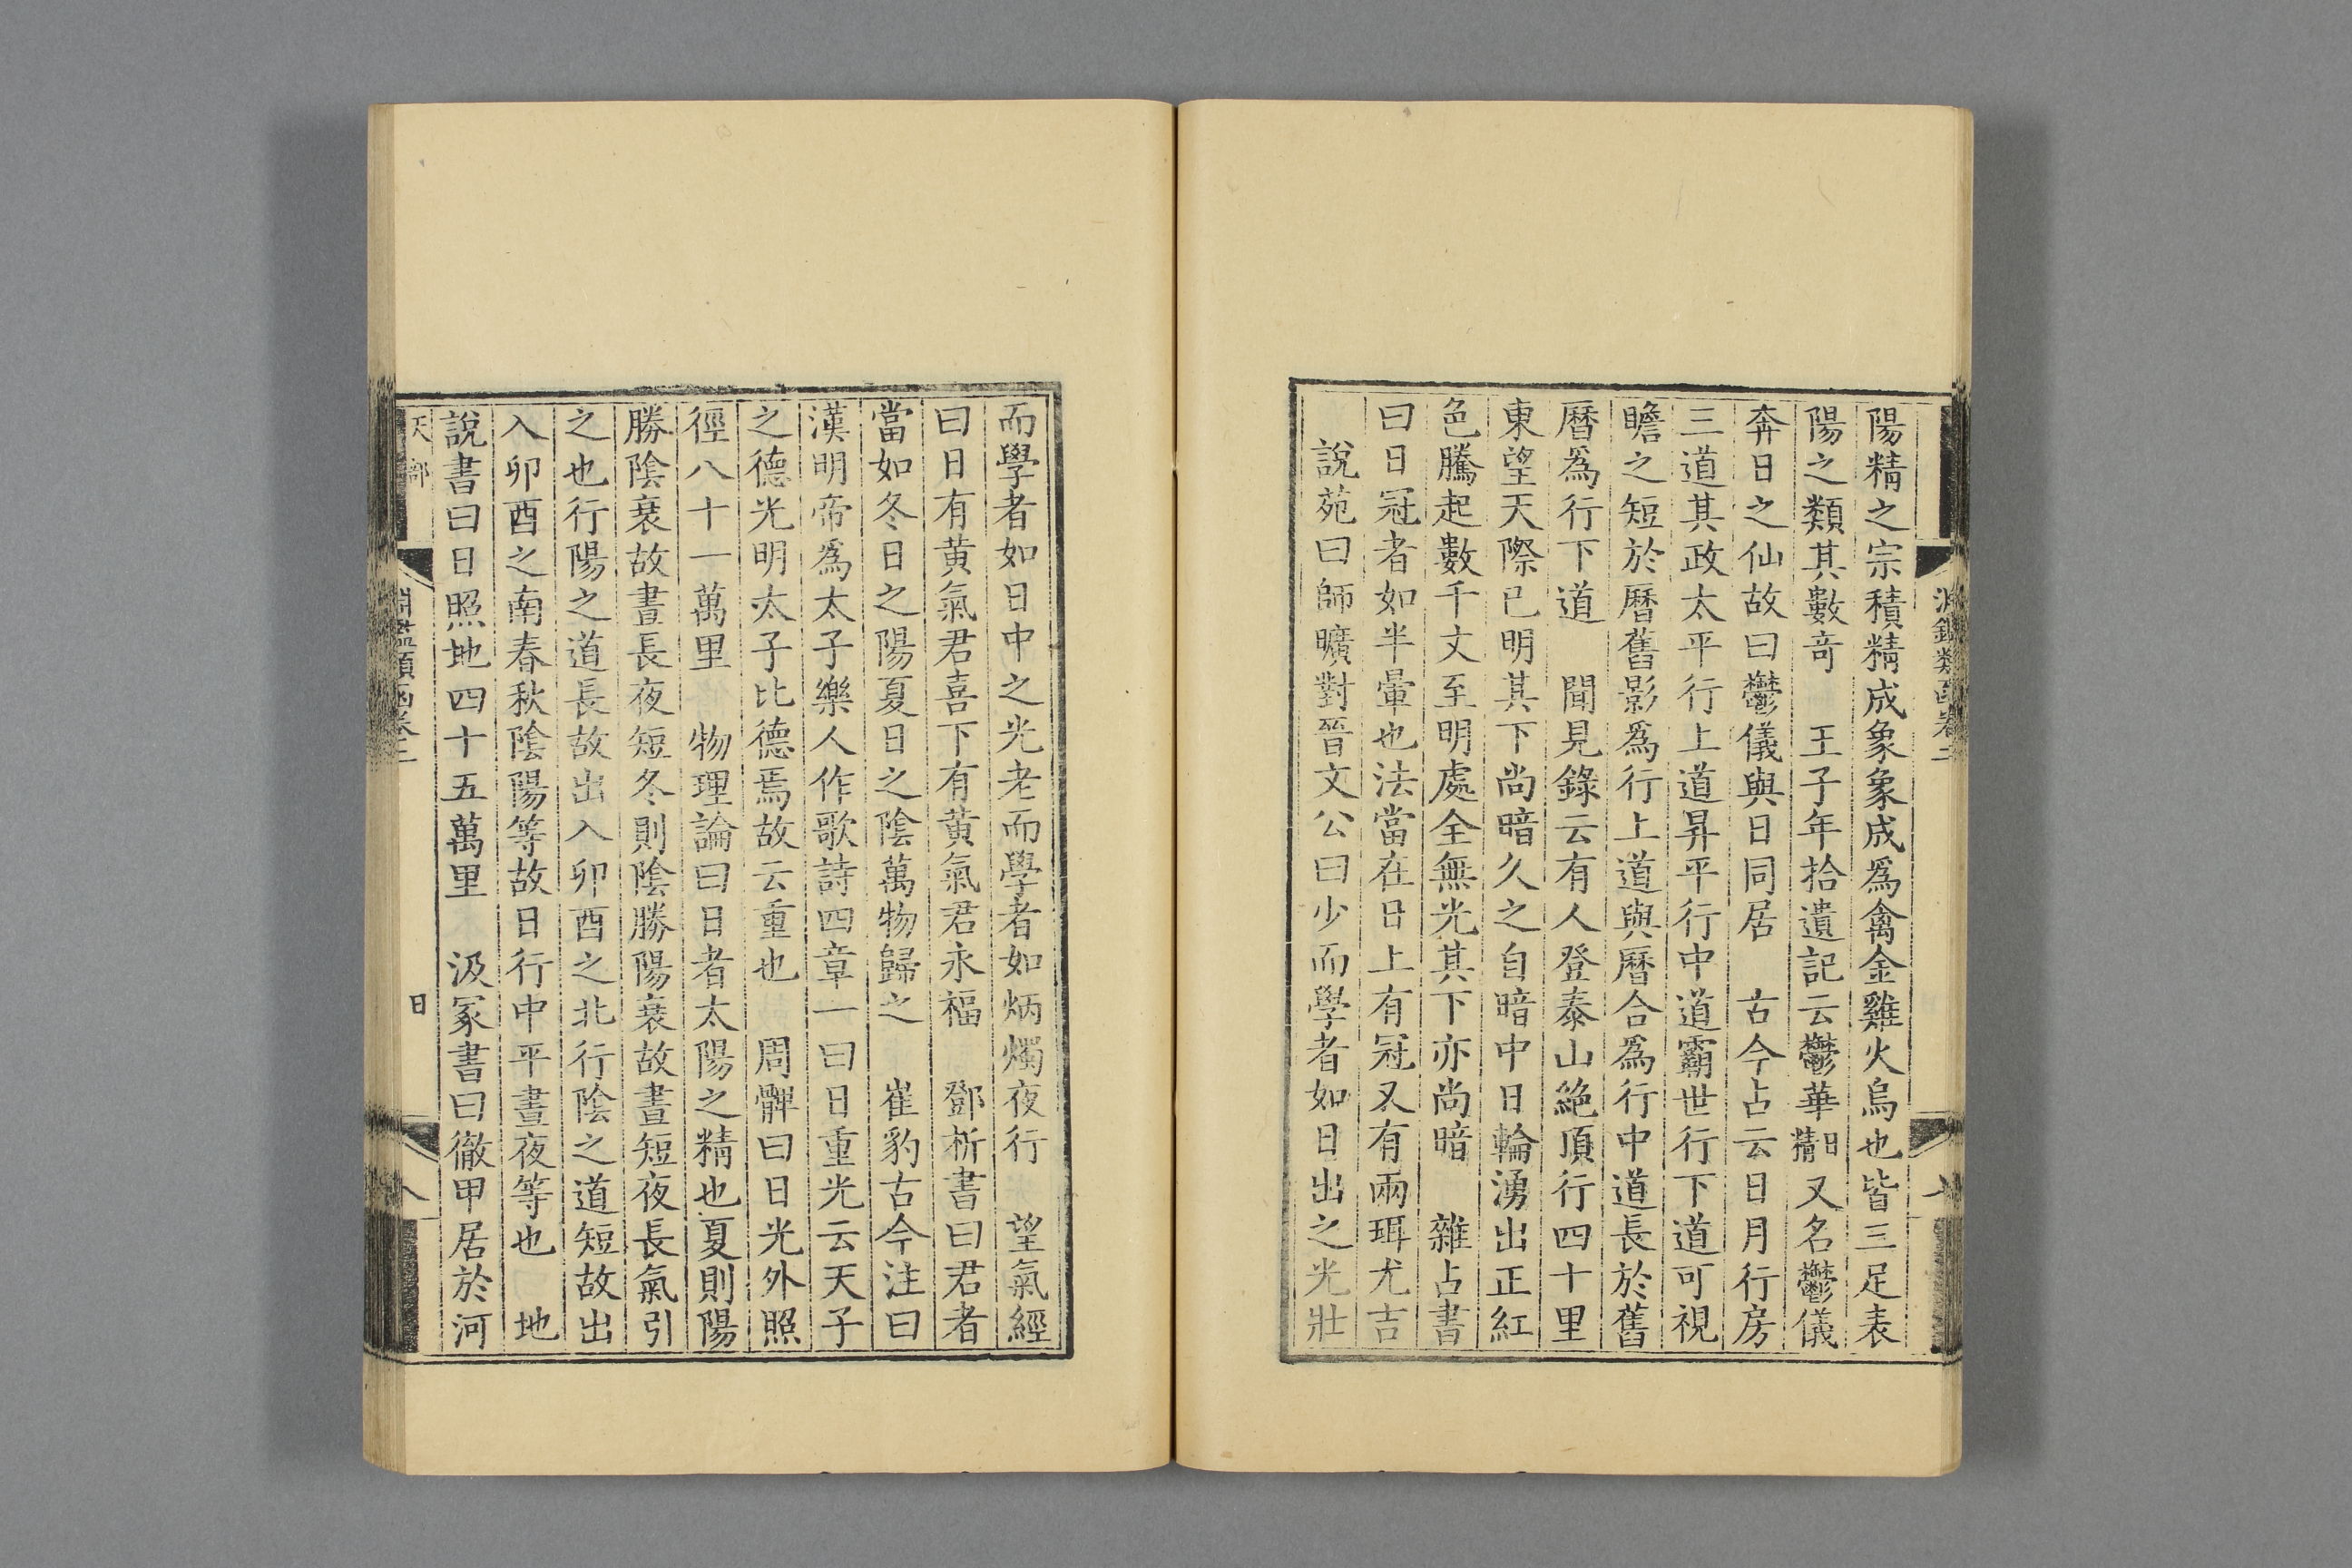 陽精之宗積精成象象成爲禽金雞火烏也皆三足表
陽之類其數竒　王子年拾遺記云鬱華日精又名鬱儀
奔日之仙故曰鬱儀與日同居　古今占云日月行房
三道其政太平行上道昇平行中道霸世行下道可視
瞻之短於曆舊影爲行上道與曆合爲行中道長於舊
曆爲行下道　聞見錄云有人登泰山絶頂行四十里
東望天際已明其下尚暗久之自暗中日輪湧出正紅
色騰起數千丈至明處全無光其下亦尚暗　雜占書
曰日冠者如半暈也法當在日上有冠又有兩珥尤吉
說苑曰師曠對晉文公曰少而學者如日出之光壯
而學者如日中之光老而學者如炳燭夜行　望氣經
曰日有黄氣君喜下有黄氣君永福　鄧析書曰君者
當如冬日之陽夏日之陰萬物歸之　崔豹古今注曰
漢明帝爲太子樂人作歌詩四章一曰日重光云天子
之德光明太子比德焉故云重也　周髀曰日光外照
徑八十一萬里　物理論曰日者太陽之精也夏則陽
勝陰衰故晝長夜短冬則陰勝陽衰故晝短夜長氣引
之也行陽之道長故出入卯酉之北行陰之道短故出
入卯酉之南春秋陰陽等故日行中平晝夜等也　地
說書曰日照地四十五萬里　汲冢書曰徹甲居於河
天部
淵鑑類函卷二
日
八